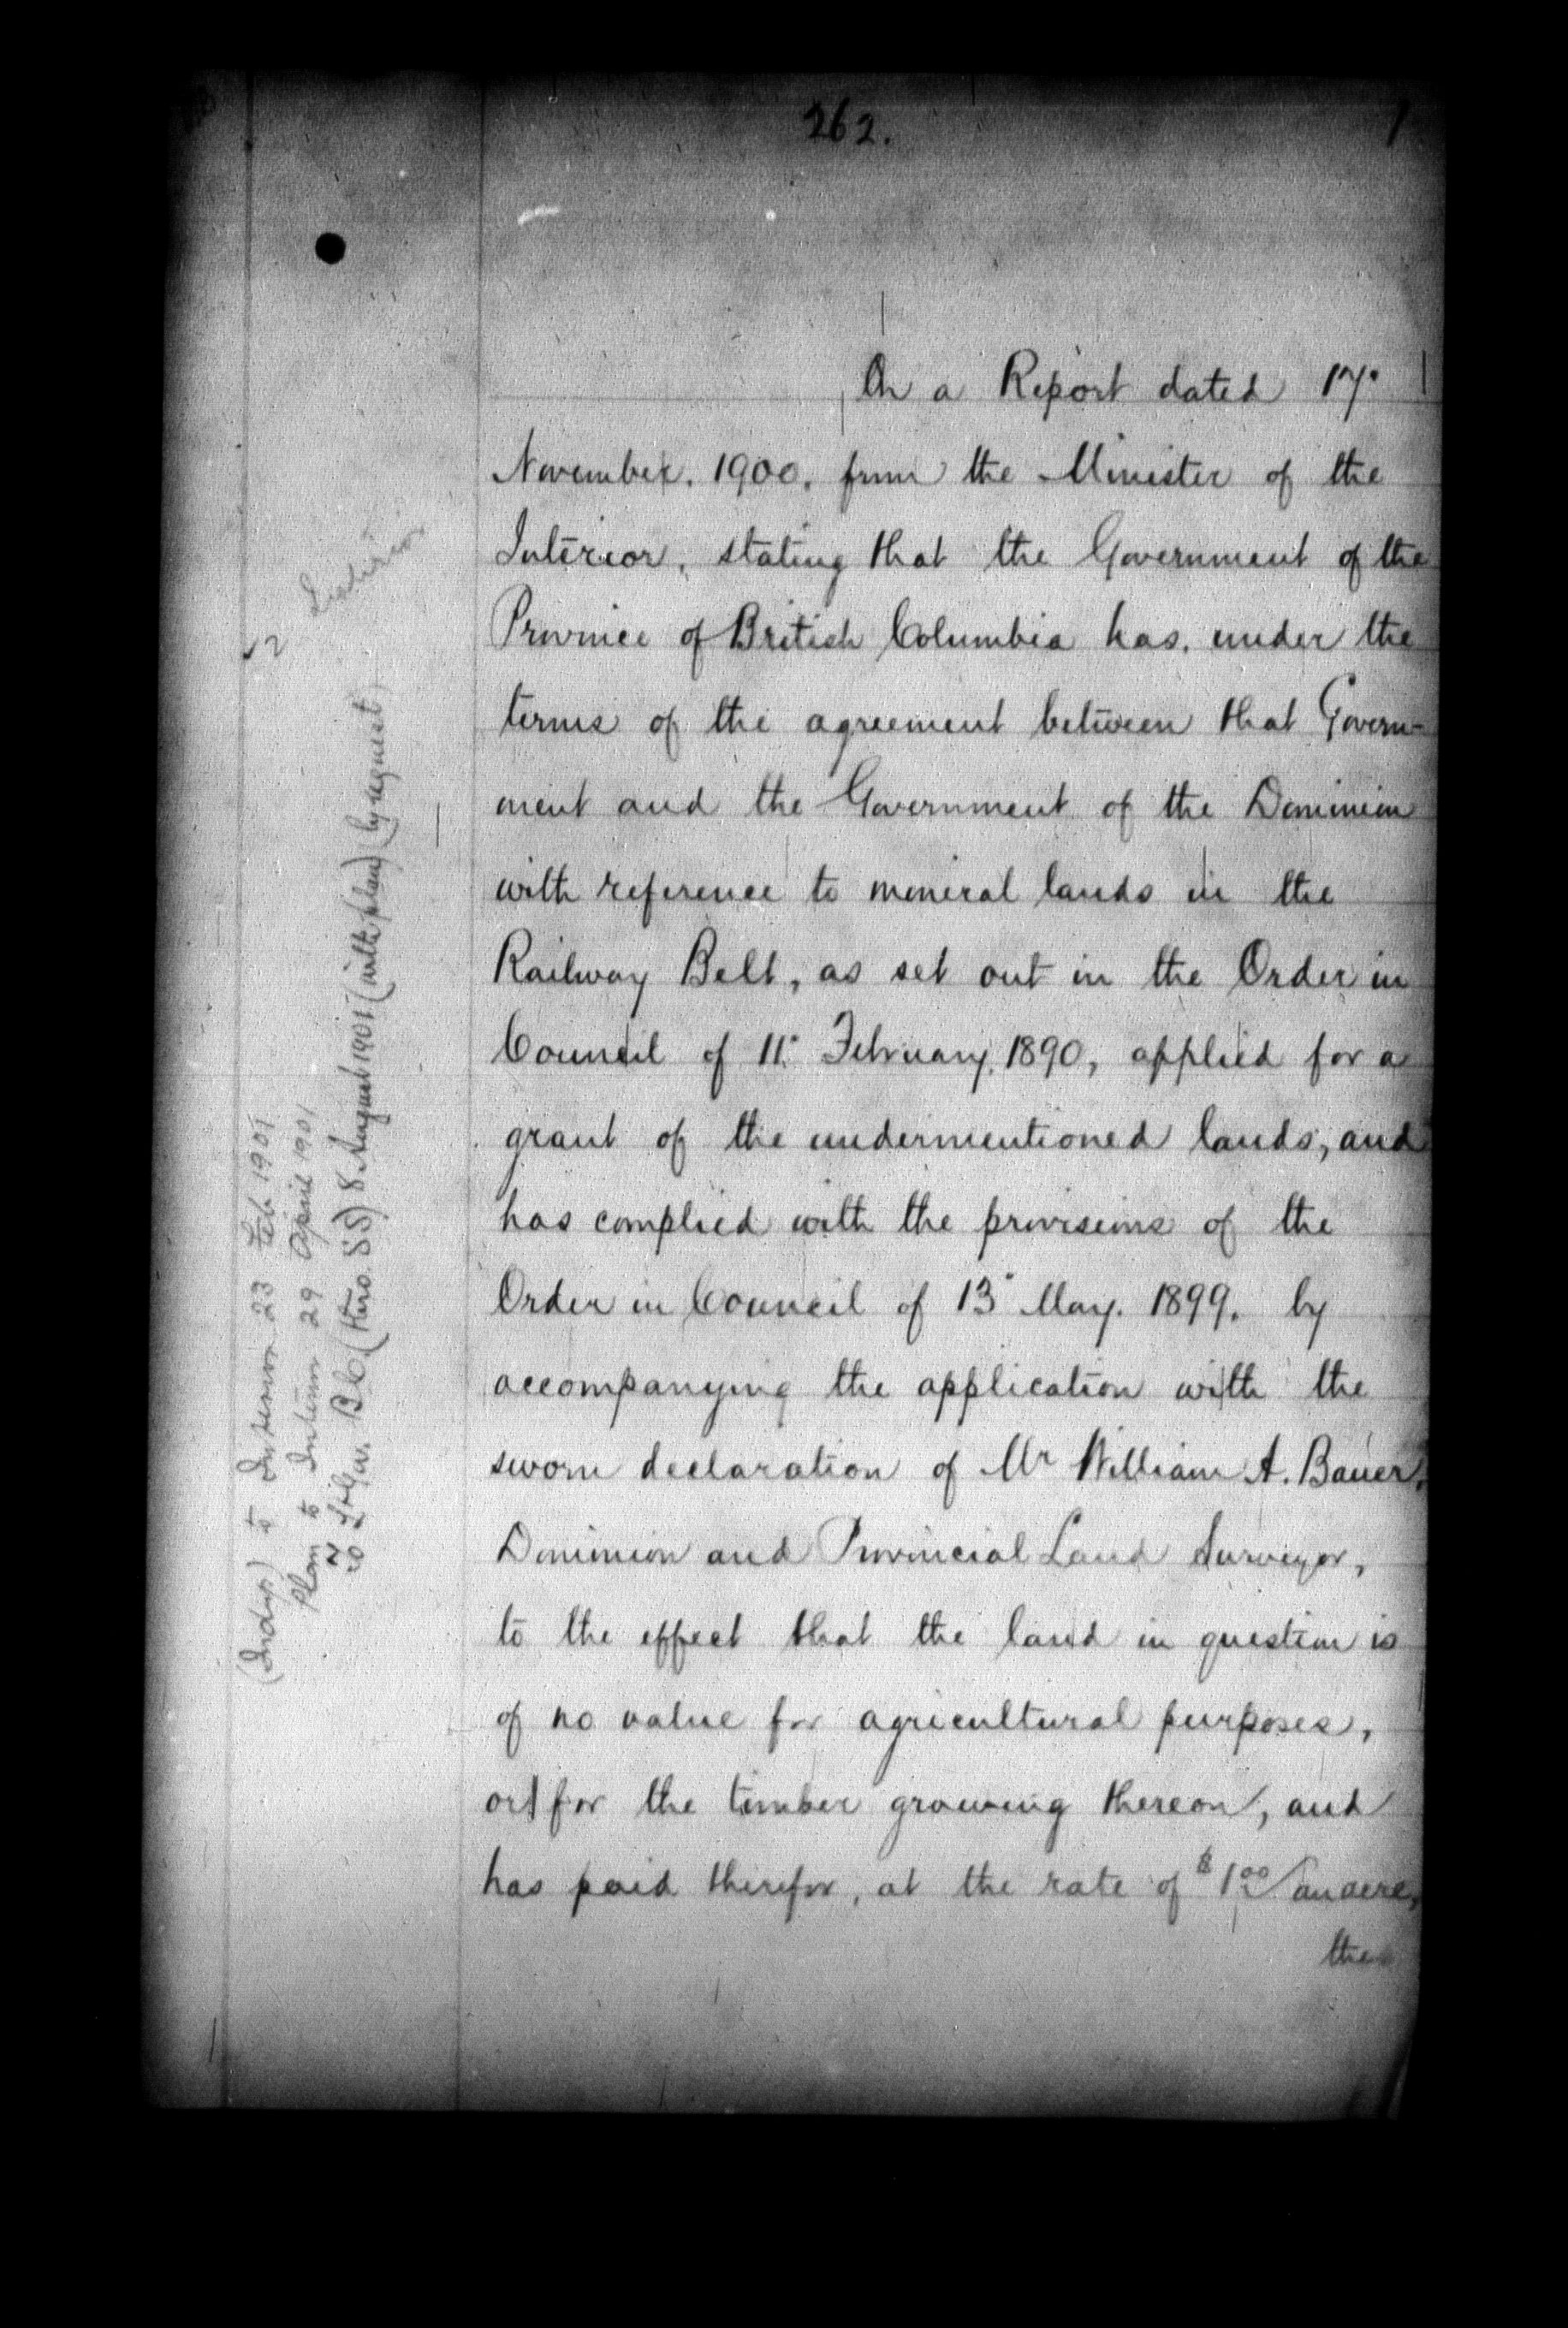 262.
On a Report dated 17°
November. 1900. from the Minister of the
Interior, stating that the Government of the
Province of British Columbia has, under the
terms of the agreement between that Govern-
ment and the Government of the Dominion
with reference to mineral lands in the
Railway Belt, as set out in the Order in
Council of 11° February, 1890, applied for a
grant of the undermentioned lands, and
has complied with the provisions of the
Order in Council of 13° May. 1899. by
accompanying the application with the
sworn declaration of Mr William A. Bauer,
Dominion and Provincial Land Surveyor,
to the effect that the land in question is
of no value for agricultural purposes,
or for the timber growing thereon, and
has paid therefor, at the rate of $1.00/an acre,
the
Interior
(Indup) to Interior 23 Feb 1901
Plan to Interior 29 April 1901
Gov. B.C. (thro. SS) 8 August 1901 (with plan) (by request)